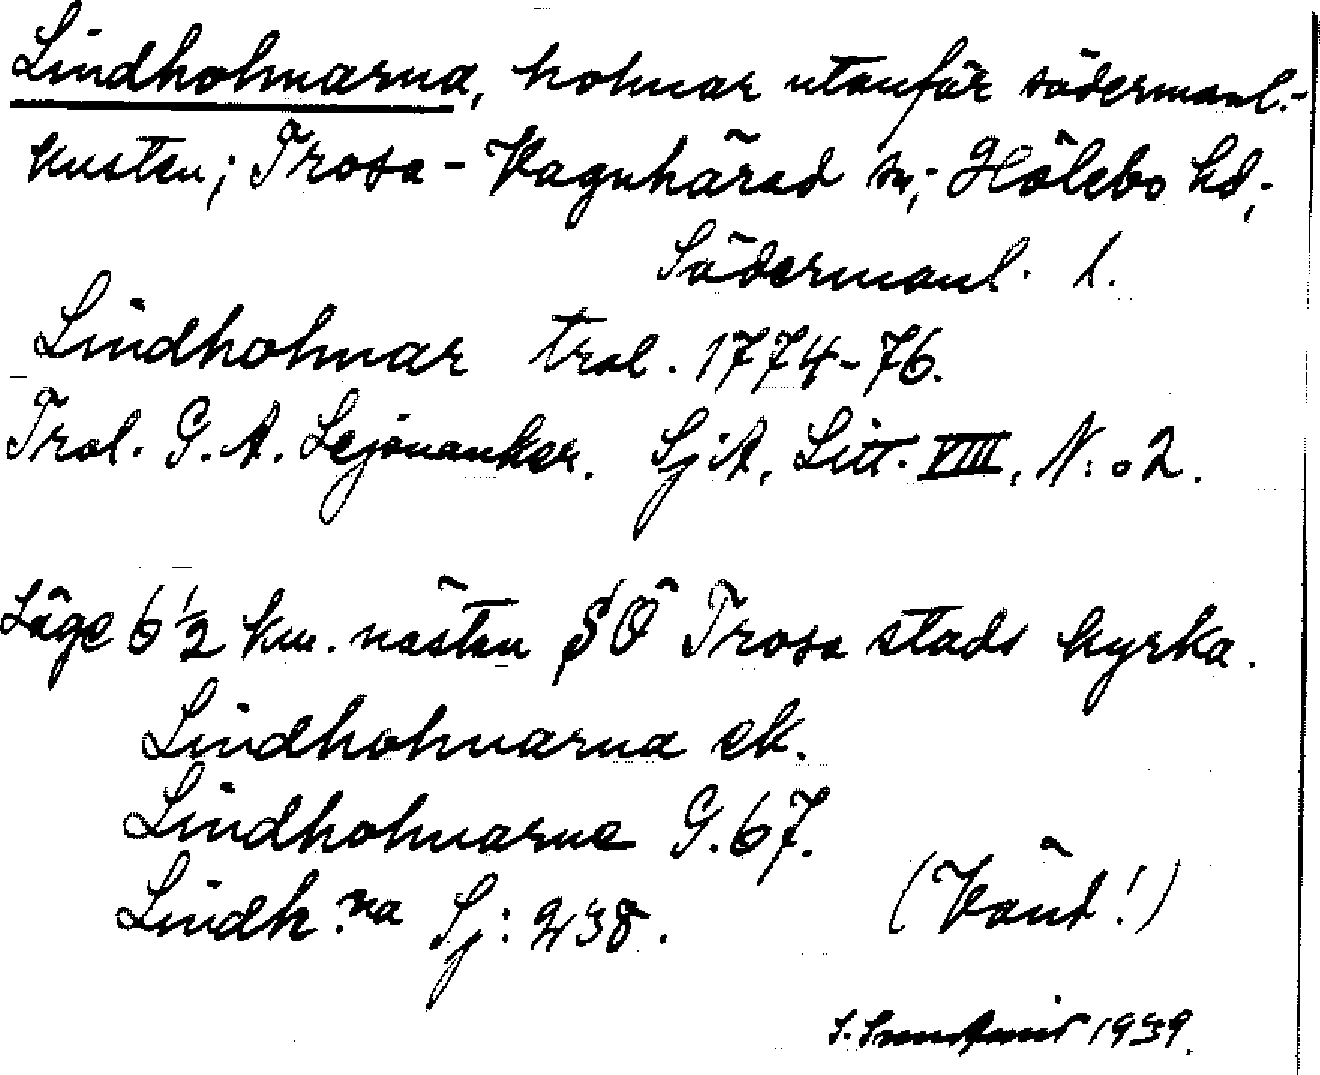 Lindholmarna, holmar utanför södermanl.-
kusten; Trosa-Vagnhärad sn; Hölebo hd;
Södermanl. l.
Lindholmar trol. 1774-76.
Trol. G. A. Lejonanker. SjA, Litt. VIII, N:o 2.
Läge 6 1/2 km. nästan SÖ Trosa stads kyrka.
Lindholmarna ek.
Lindholmarne G. 67.
Lindh:na Sj: 238.
(Vänd!)
S. 1939.